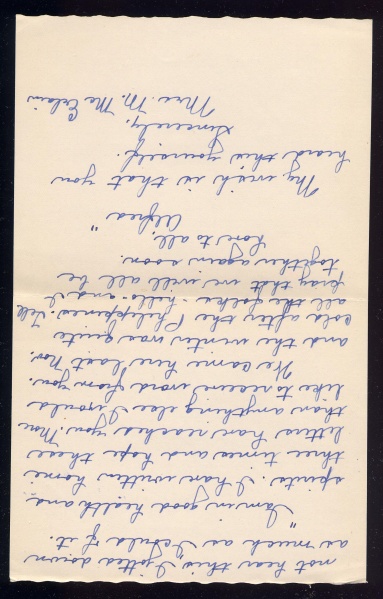 not hear this I jotted down
as much as I could of it.
"I am in good health and
spirits. I have written home
three times and hope these
letters have reaches you. More
than anything else I would
like to receive word from you.
We came here last Nov.
and the winter was quite
cold after the Philippines. Tell
all the folks - hello - and I
pray that we will all be
together again soon.
Love to all,
Alfred"
My wish is that you
heard this yourself.
Sincerely,
Mrs. M. Mc